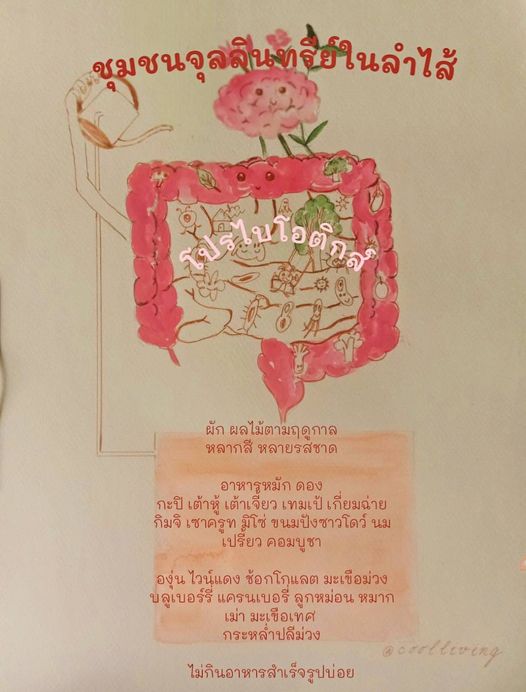 ชุมชนจุลลินทรีย์ในลำไส้
โปรไบโอติกส์
ผัก ผลไม้ตามฤดูกาล
หลากสี หลายรสชาด
อาหารหมัก ดอง
กะปิ เต้าหู้ เต้าเจี้ยว เทมเป้ เกี่ยมฉ่าย
กิมจิ เซาครูท มิโซ่ ขนมปังซาวโดว์ นม
เปรี้ยว คอมบูชา
องุ่น ไวน์แดง ช้อกโกแลต มะเขือม่วง
บลูเบอร์รี่ แครนเบอรี่ ลูกหม่อน หมาก
เม่า มะเขือเทศ
กระหล่ำปลีม่วง
@coolliving
ไม่กินอาหารสำเร็จรูปบ่อย